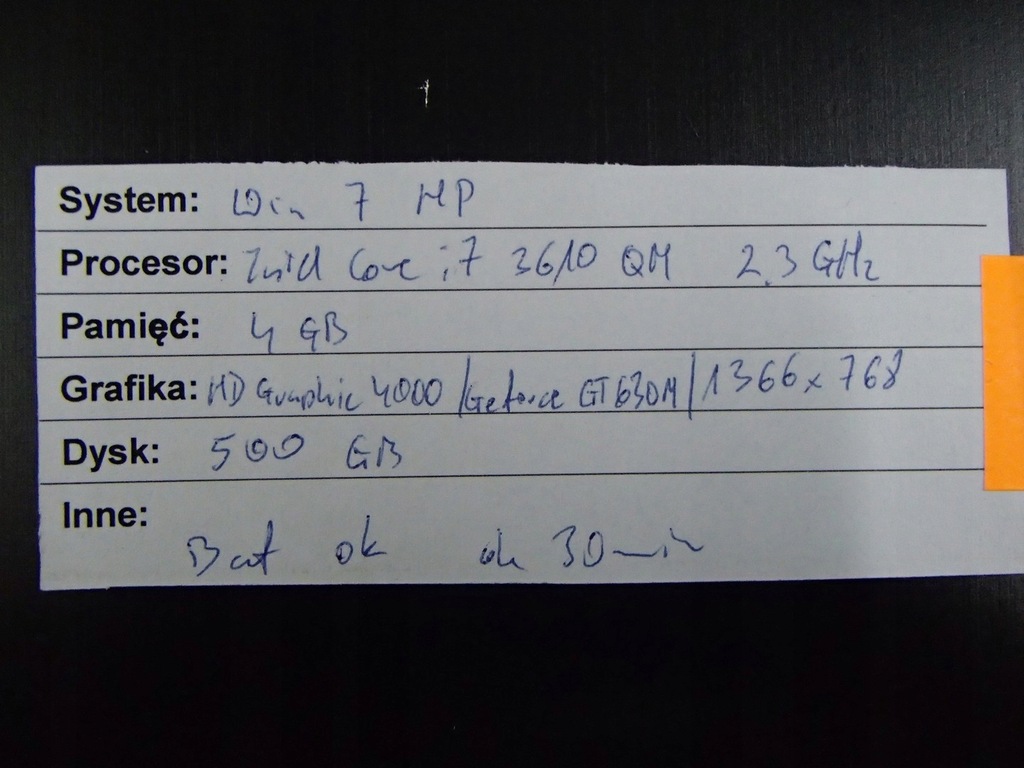 System: Win 7 HP
Procesor: Intel Core i7 3610 QM 2.3 GHz
Pamięć: 4 GB
Grafika: HD Graphic 4000 / Geforce GT 630M / 1366 x 768
Dysk: 500 GB
Inne:
Bat ok ok 30 min